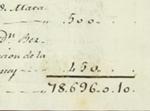 8. Maca
500.
Dn. Ber-
cion de la
ncy
450.
78.696.0.10.